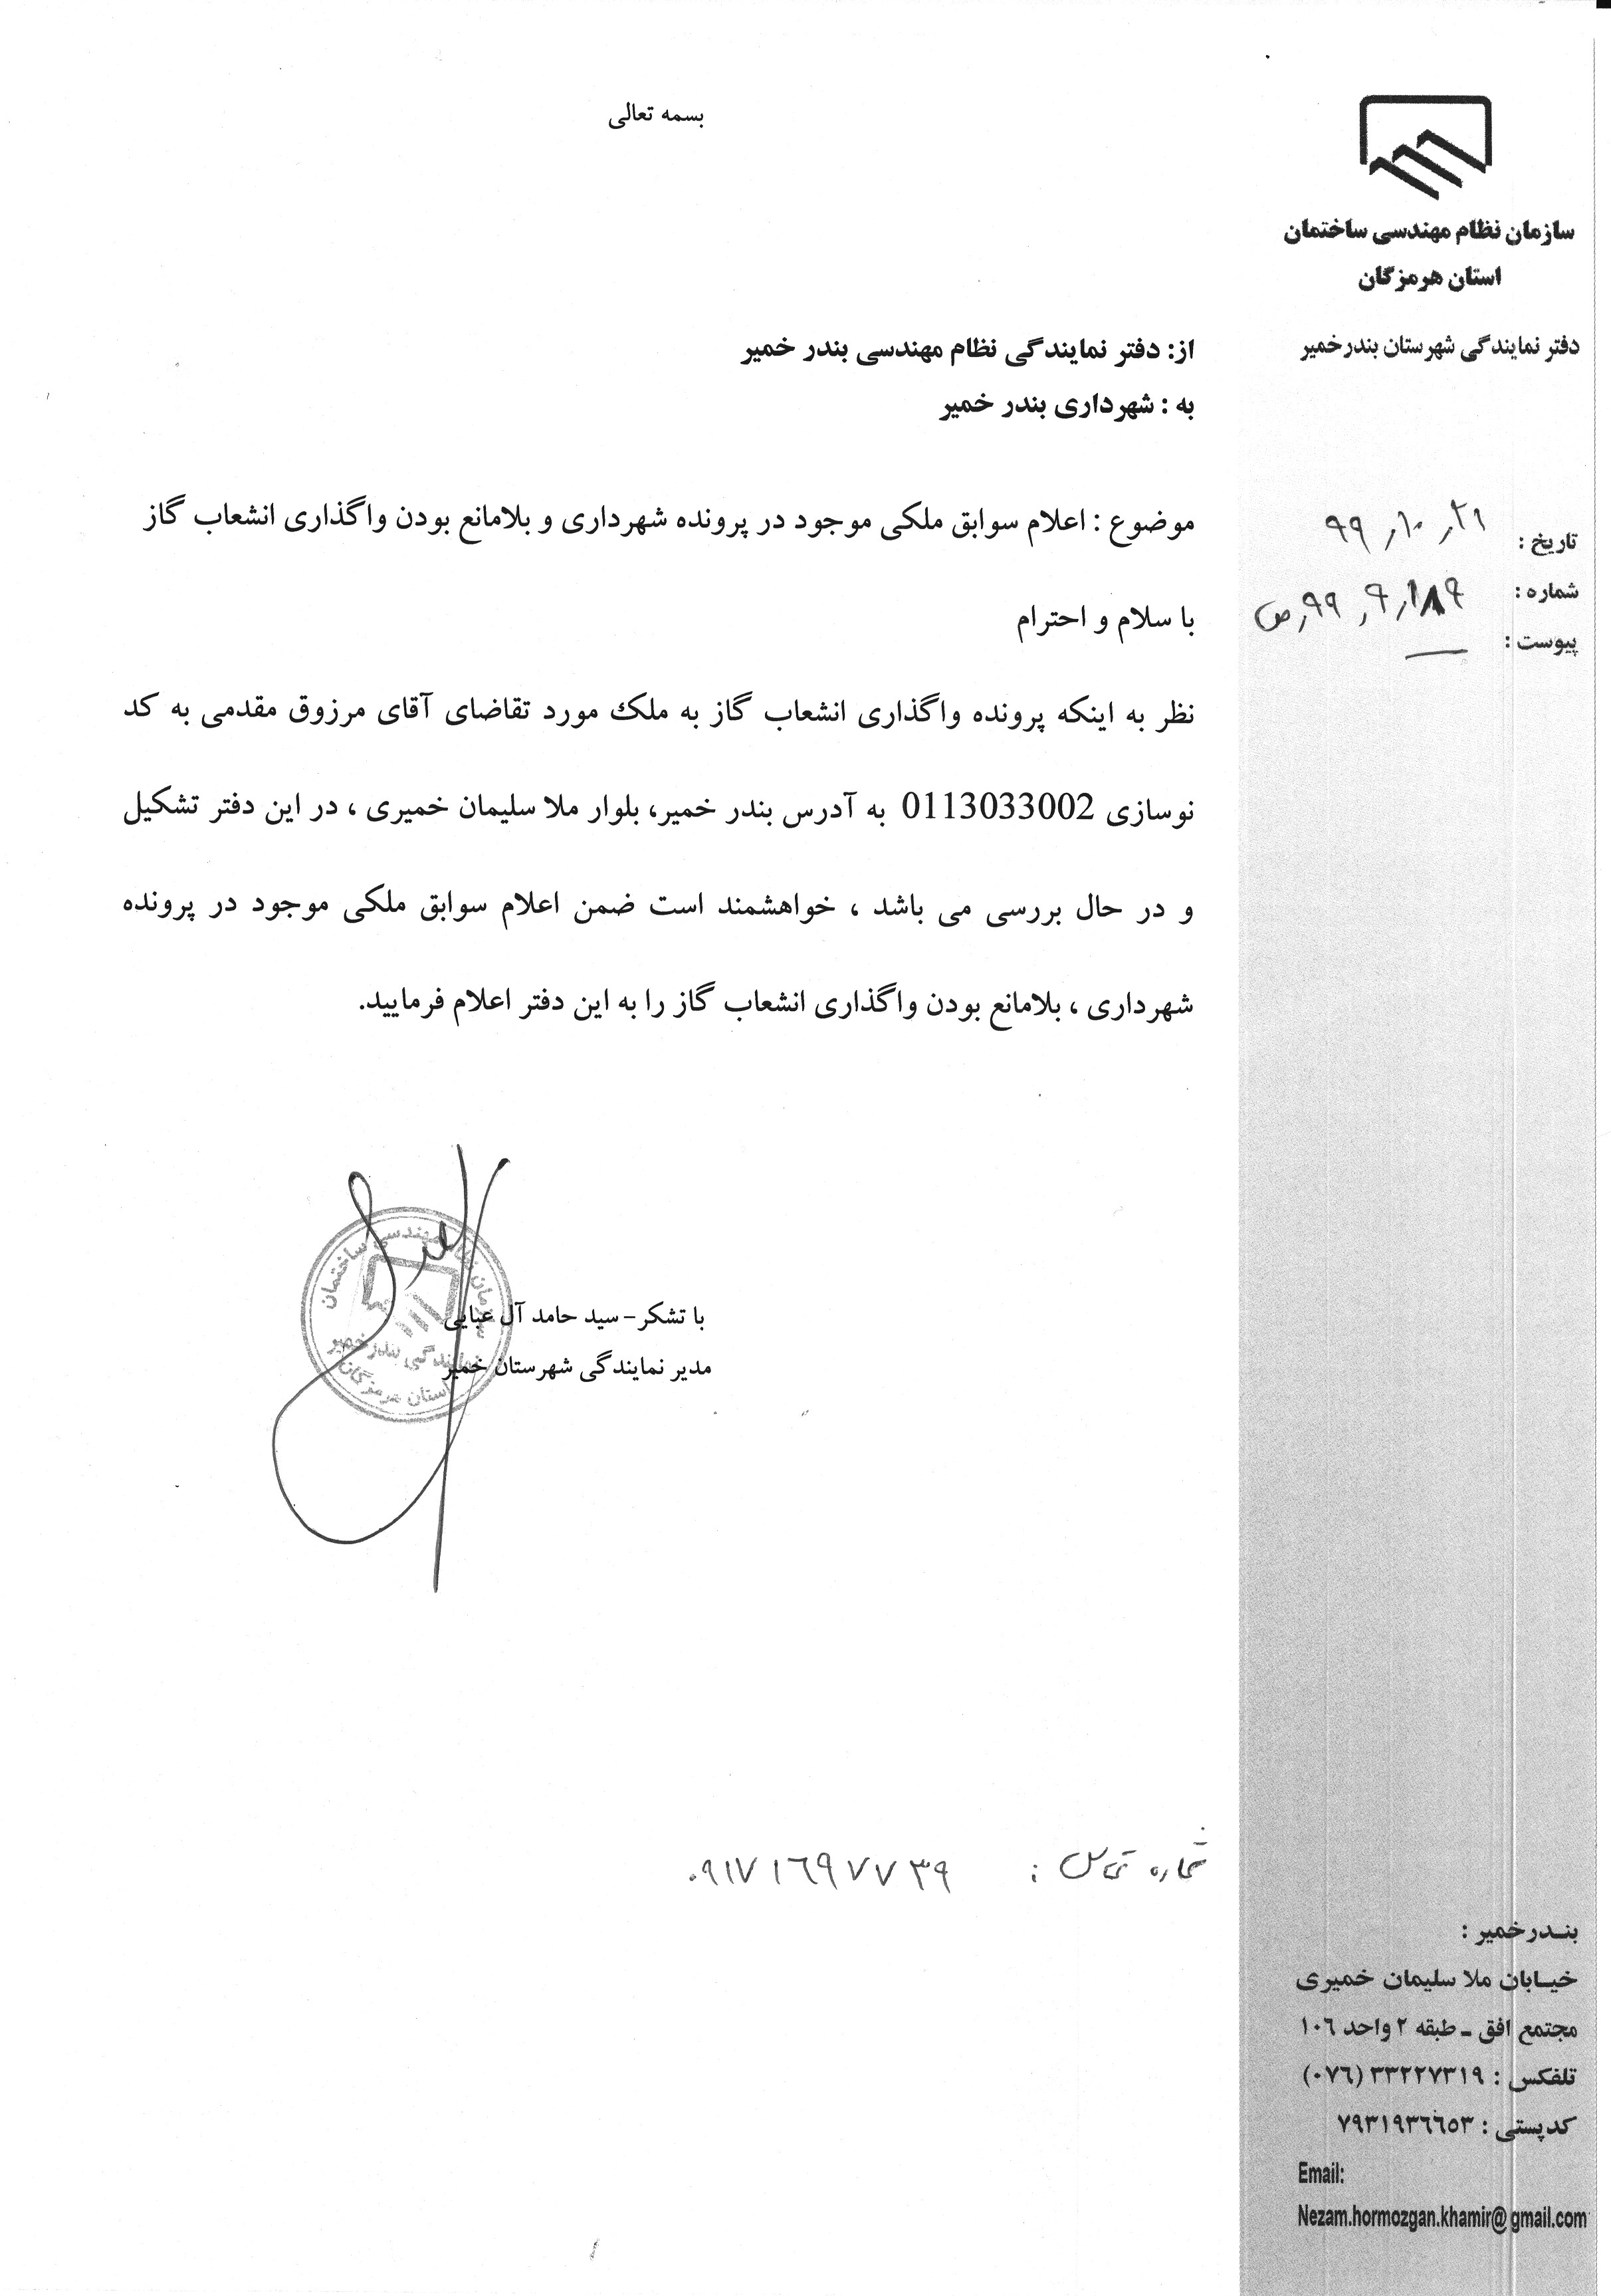 بسمه تعالی
سازمان نظام مهندسی ساختمان
استان هرمزگان
دفتر نمایندگی شهرستان بندرخمیر
تاریخ : ۹۹,۱۰,۲۱
شماره :
پیوست : —
از: دفتر نمایندگی نظام مهندسی بندر خمیر
به : شهرداری بندر خمیر
موضوع : اعلام سوابق ملکی موجود در پرونده شهرداری و بلامانع بودن واگذاری انشعاب گاز
با سلام و احترام
نظر به اینکه پرونده واگذاری انشعاب گاز به ملک مورد تقاضای آقای مرزوق مقدمی به کد
نوسازی 0113033002 به آدرس بندر خمیر، بلوار ملا سلیمان خمیری ، در این دفتر تشکیل
و در حال بررسی می باشد ، خواهشمند است ضمن اعلام سوابق ملکی موجود در پرونده
شهرداری ، بلامانع بودن واگذاری انشعاب گاز را به این دفتر اعلام فرمایید.
سازمان نظام مهندسی ساختمان
نمایندگی بندرخمیر
استان هرمزگان
با تشکر – سید حامد آل عبایی
مدیر نمایندگی شهرستان خمیر
شماره تماس : ۰۹۱۷۱۶۹۷۷۳۹
بندرخمیر :
خیابان ملا سلیمان خمیری
مجتمع افق ـ طبقه ۲ واحد ۱۰۶
تلفکس : ۳۳۲۲۷۳۱۹ (۰۷۶)
کدپستی : ۷۹۳۱۹۳۶۶۵۳
Email:
Nezam.hormozgan.khamir@gmail.com